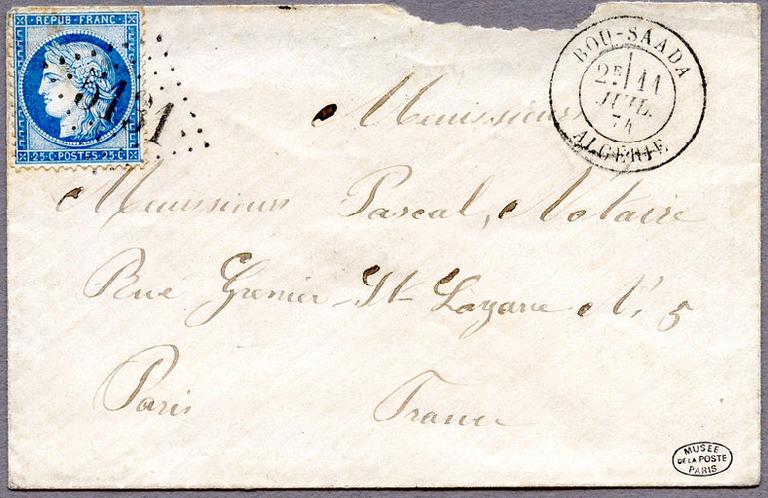 REPUB·FRANC·
25·C·POSTES·25·C·
5131
BOU-SAADA
2E 11
JUIL.
74
ALGÉRIE
Monsieur
Monsieur Pascal, Notaire
Rue Grenier-St-Lazare N° 5
Paris France
MUSÉE
DE LA POSTE
PARIS